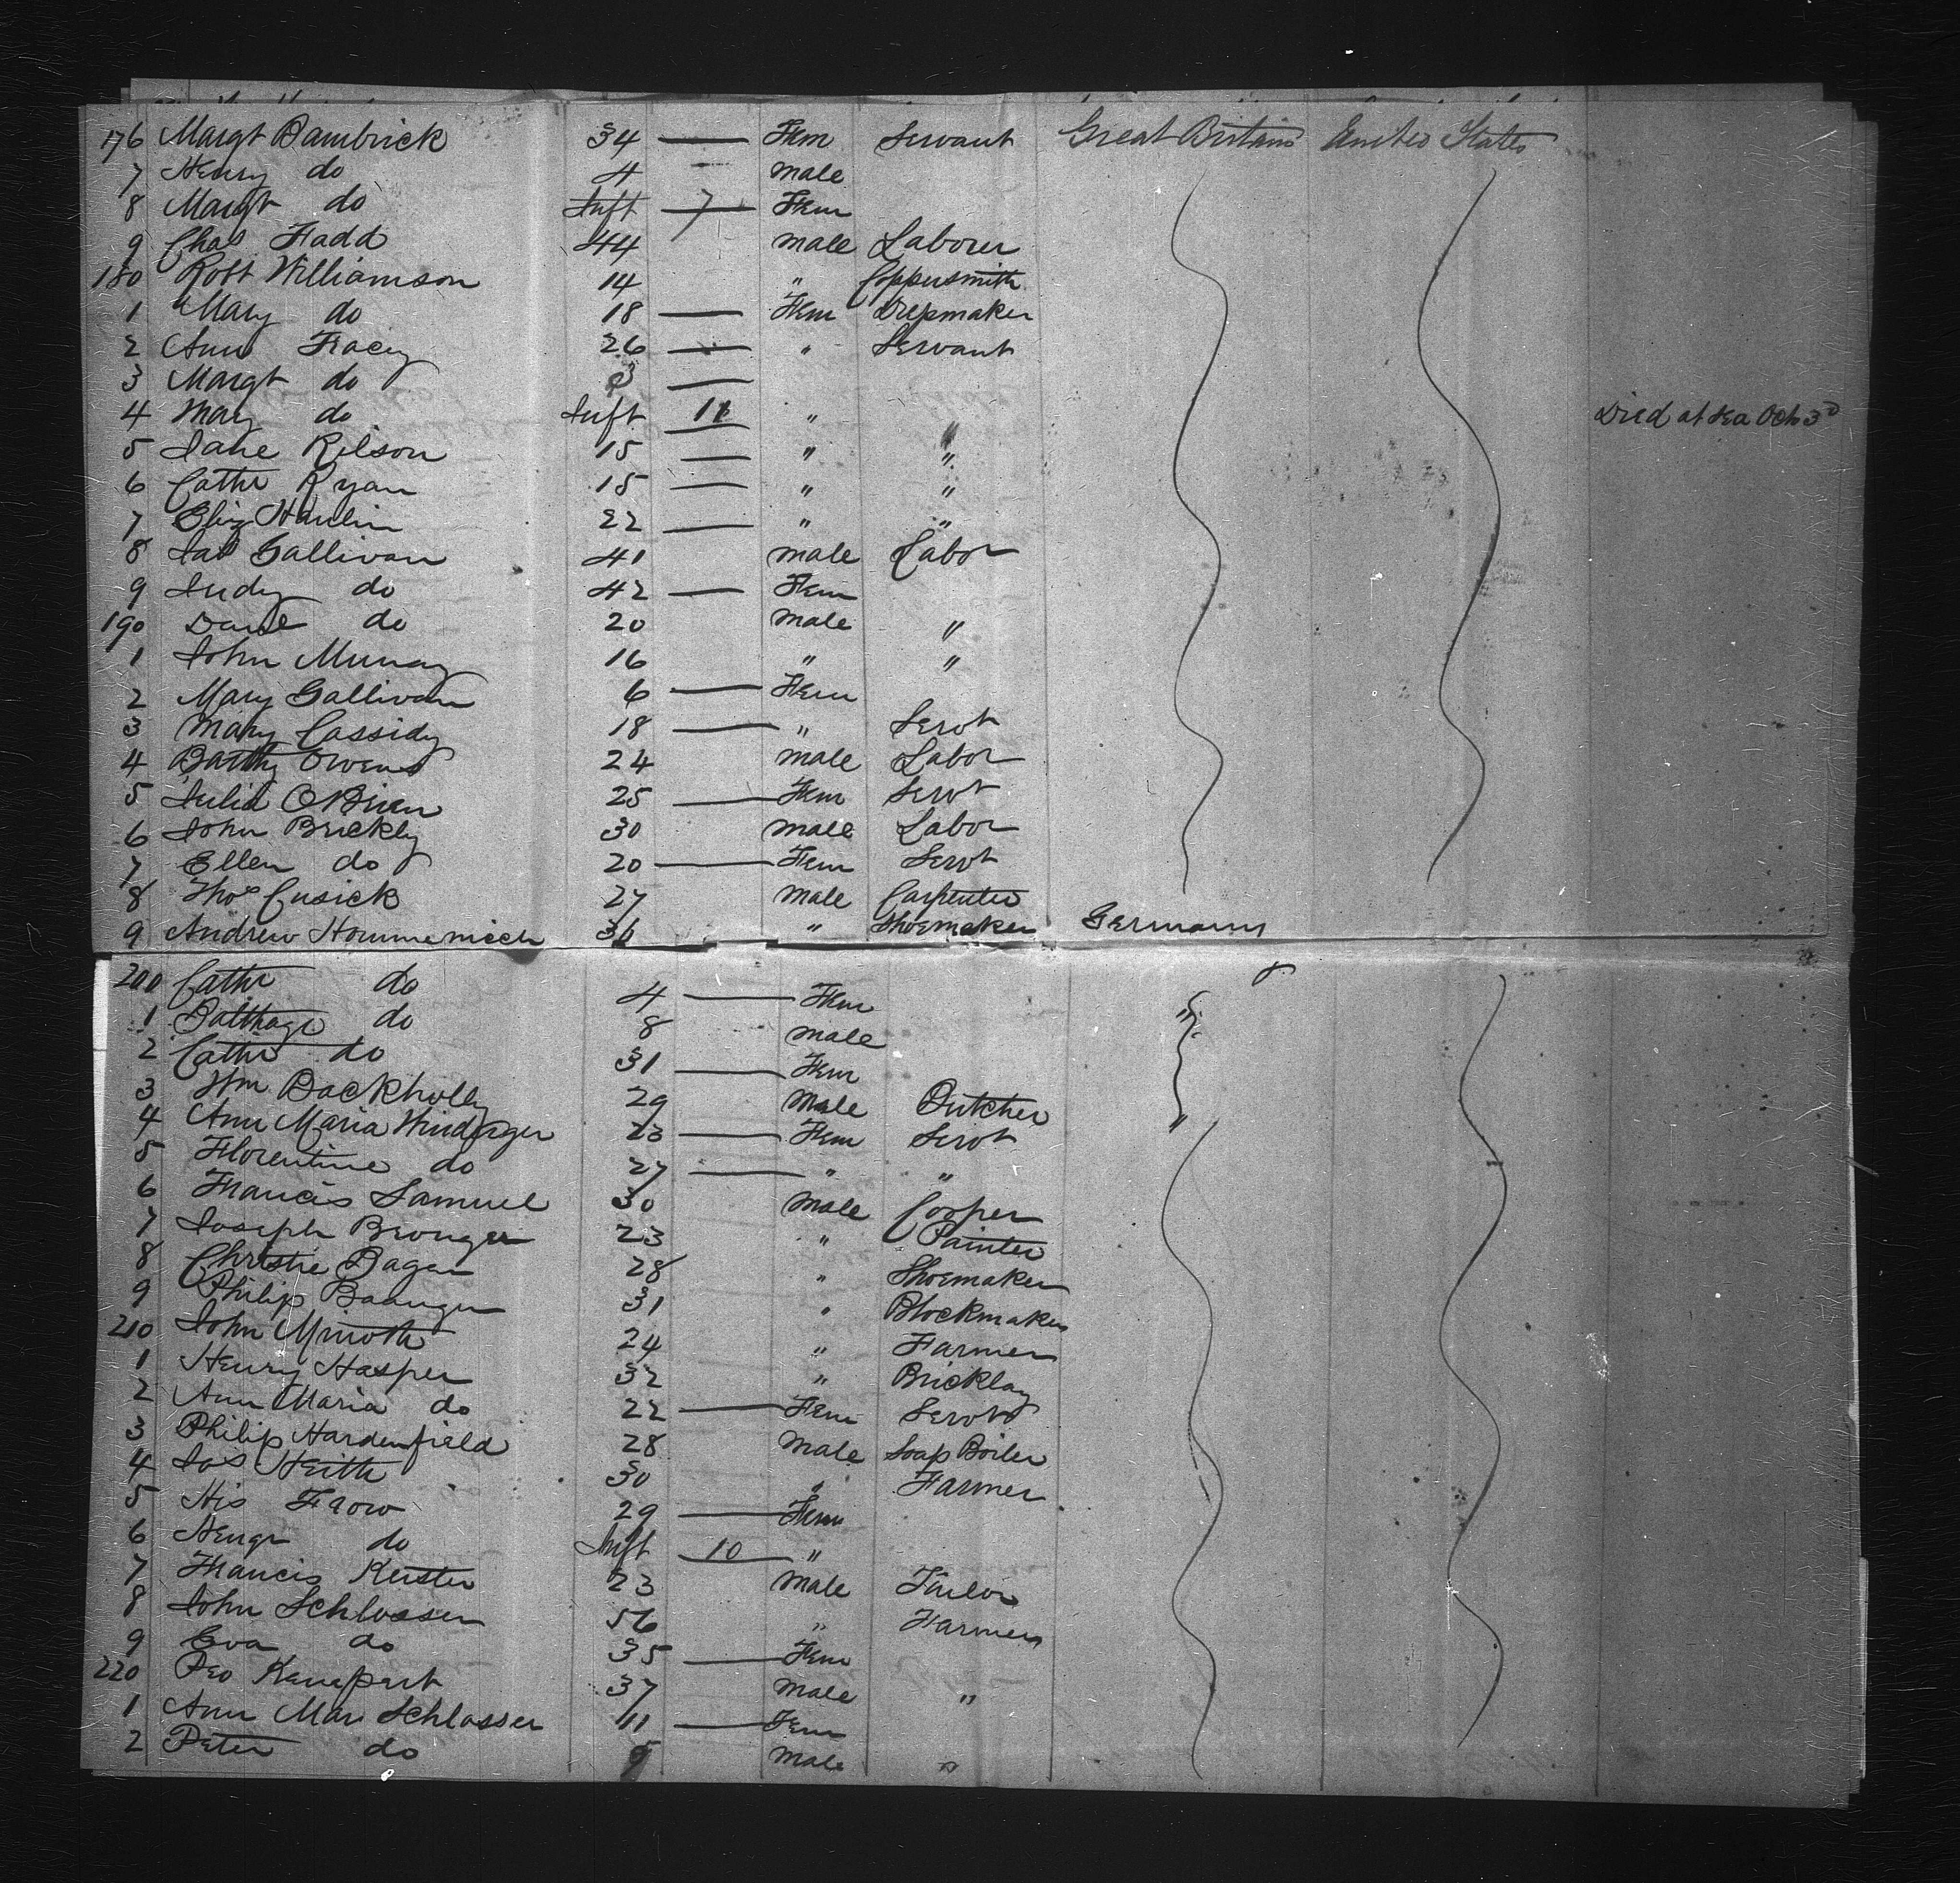 176 Margt Bambrick 34 — Fem Servant Great Britain United States
7 Henry do 4 — male
8 Margt do Inft 7 Fem
9 Chas Fadd 44 male Laborer
180 Robt Williamson 14 " Coppersmith
1 Mary do 18 — Fem Dressmaker
2 Ann Tracey 26 — " Servant
3 Margt do 3 —
4 Mary do Inft 11 " Died at Sea Oct 3d
5 Jane Rilson 15 — " "
6 Cathe Ryan 15 — " "
7 Eliz Hanlin 22 — " "
8 Jas Gallivan 41 male Labor
9 Judy do 42 — Fem
190 Danl do 20 male "
1 John Murray 16 " "
2 Mary Gallivan 6 — Fem
3 Mary Cassidy 18 — " Servt
4 Barthy Owens 24 male Labor
5 Julia OBrien 25 — Fem Servt
6 John Brickly 30 male Labor
7 Ellen do 20 — Fem Servt
8 Thos Cusick 27 male Carpenter
9 Andrew 36 " Shoemaker Germany
200 Cathe do 4 — Fem
1 do 8 male "
2 Cathe do 31 — Fem
3 Wm 29 Male Butcher "
4 Ann Maria 23 — Fem Servt
5 Florentine do 27 — " "
6 Francis Samuel 30 male Cooper
7 Joseph 23 " Painter
8 Christie Dagen 28 " Shoemaker
9 Philip 31 " Blockmaker
210 John 24 " Farmer
1 Henry Hasper 32 " Bricklay
2 Ann Maria do 22 — Fem Servt
3 Philip Hardenfield 28 Male Soap Boiler
4 Jos Heith 30 " Farmer
5 His Frow 29 — Fem
6 do Inft 10 "
7 Francis Kerster 23 male Tailor
8 John Schlosser 56 " Farmer
9 Eva do 35 — Fem
220 37 Male "
1 Ann Mar Schlosser 11 — Fem
2 Peter do male "